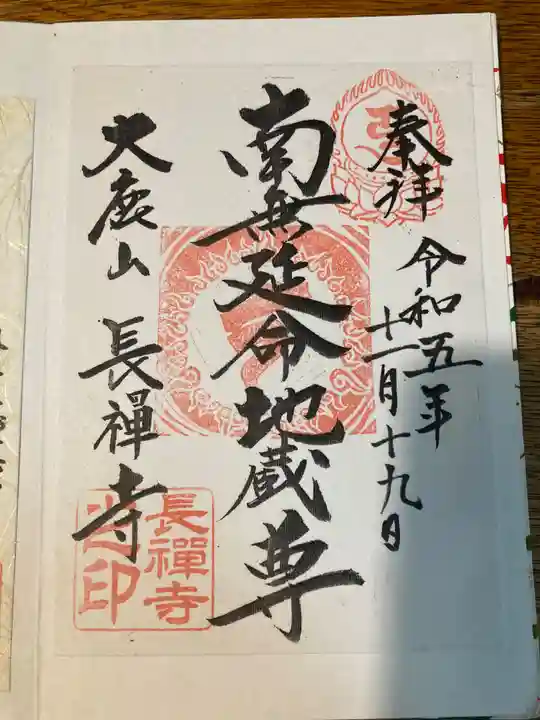 奉拝
令和五年
十一月十九日
南無延命地蔵尊
大鹿山 長禪寺
長禪寺
印